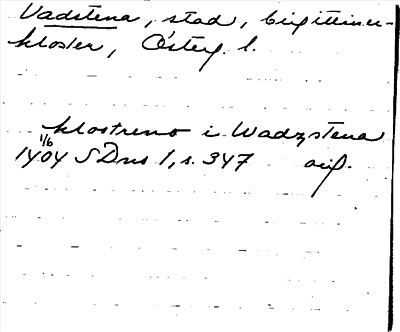 Vadstena, stad, birgittiner-
kloster, Österg. l.
klostreno i Wadzstena
1/6
1404 SDns 1, s. 347 orig.